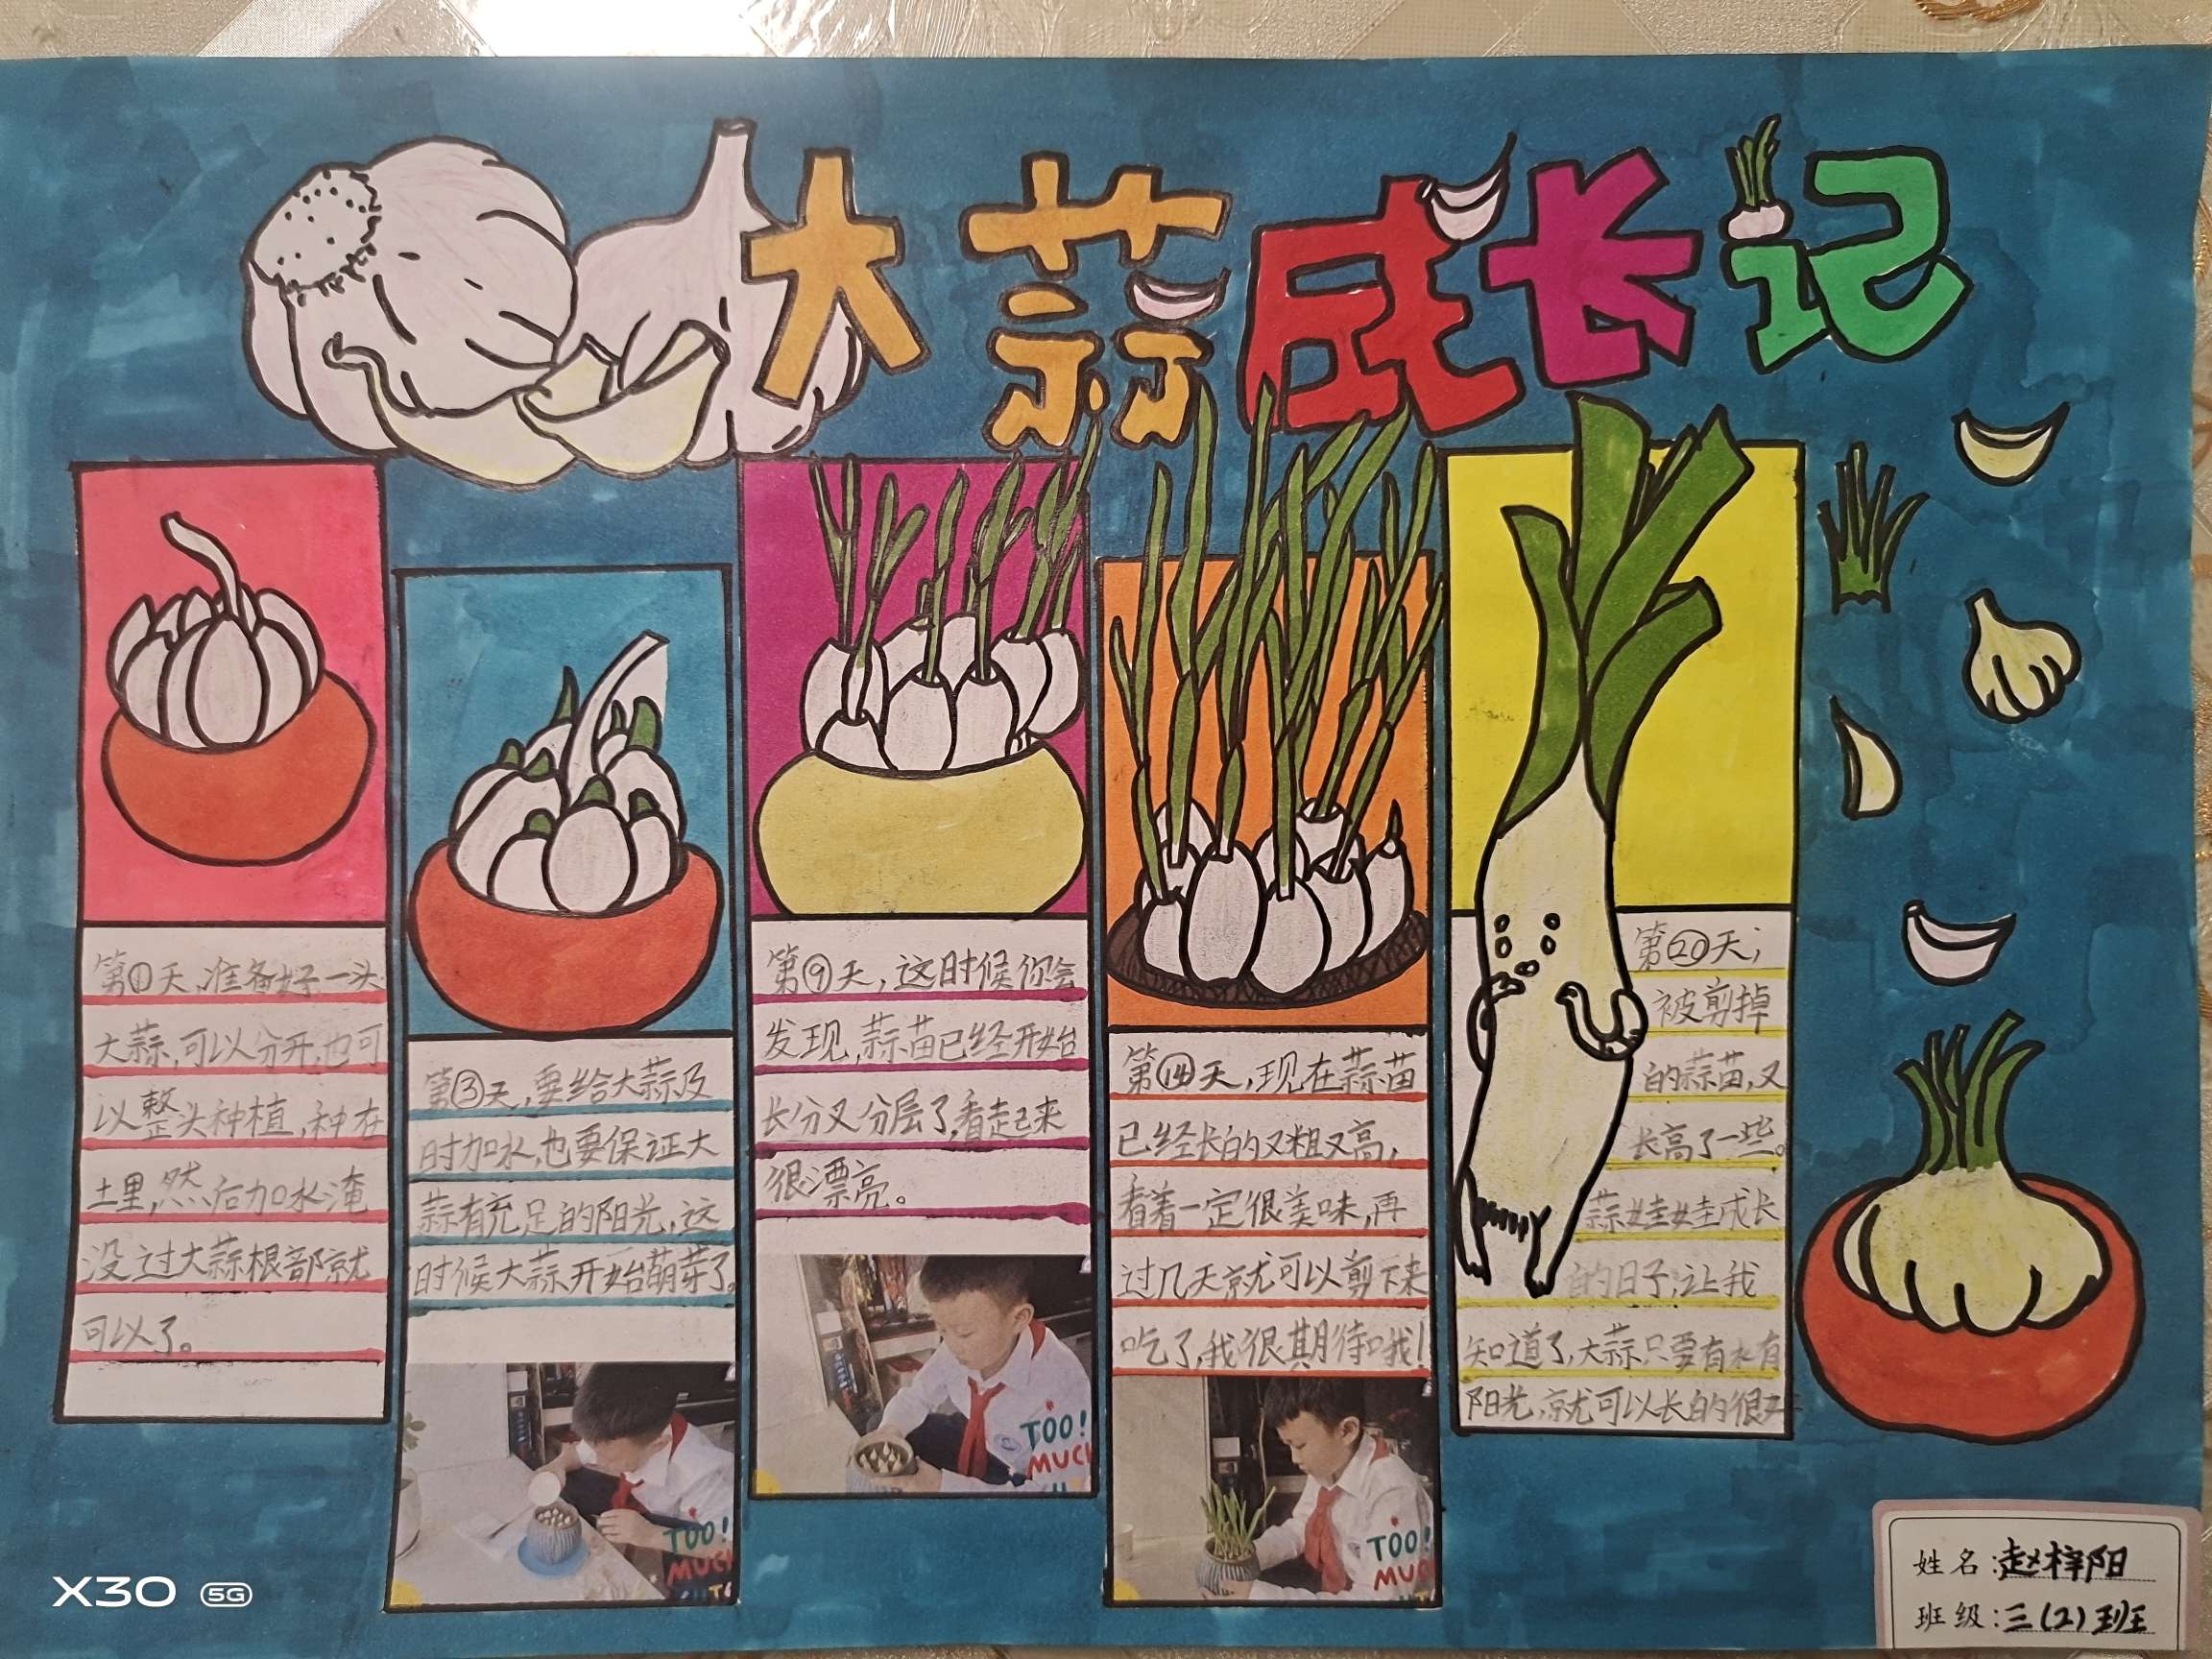 大蒜成长记
第①天,准备好一头
大蒜,可以分开,也可
以整头种植,种在
土里,然后加水淹
没过大蒜根部就
可以了。
第③天,要给大蒜及
时加水,也要保证大
蒜有充足的阳光,这
时候大蒜开始萌芽了。
TOO!
MUCH
第⑨天,这时候你会
发现,蒜苗已经开始
长分叉分层了,看起来
很漂亮。
TOO!
MUCH
第⑭天,现在蒜苗
已经长的又粗又高,
看着一定很美味,再
过几天就可以剪下来
吃了,我很期待哦!
TOO!
MUC
第⑳天,
被剪掉
的蒜苗,又
长高了一些。
蒜娃娃成长
的日子,让我
知道了,大蒜只要有水有
阳光,就可以长的很好
姓名:赵梓阳
班级:三(2)班
X30 5G